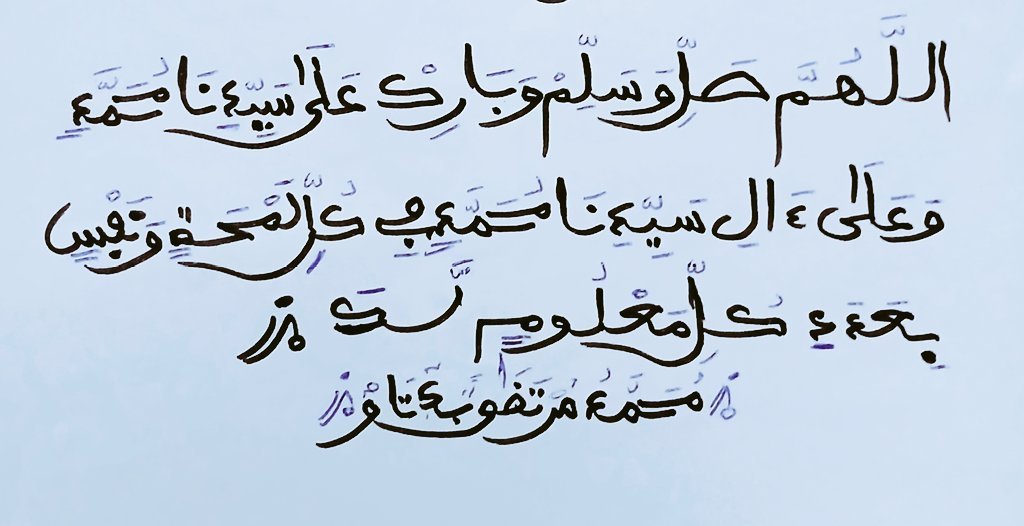 اللَّهُمَّ صَلِّ وَسَلِّمْ وَبَارِكْ عَلَىٰ سَيِّدِنَا مُحَمَّدٍ
وَعَلَىٰ ءَالِ سَيِّدِنَا مُحَمَّدٍ فِي كُلِّ لَمْحَةٍ وَنَفَسٍ
بِعَدَدِ كُلِّ مَعْلُومٍ لَّكَ
مُحَمَّدُ مُرْتَضَىٰ